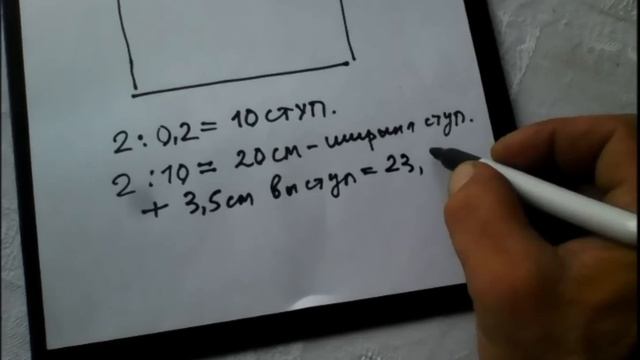 2 : 0,2 = 10 ступ.
2 : 10 = 20 см - ширина ступ.
+ 3,5 см выступ = 23,